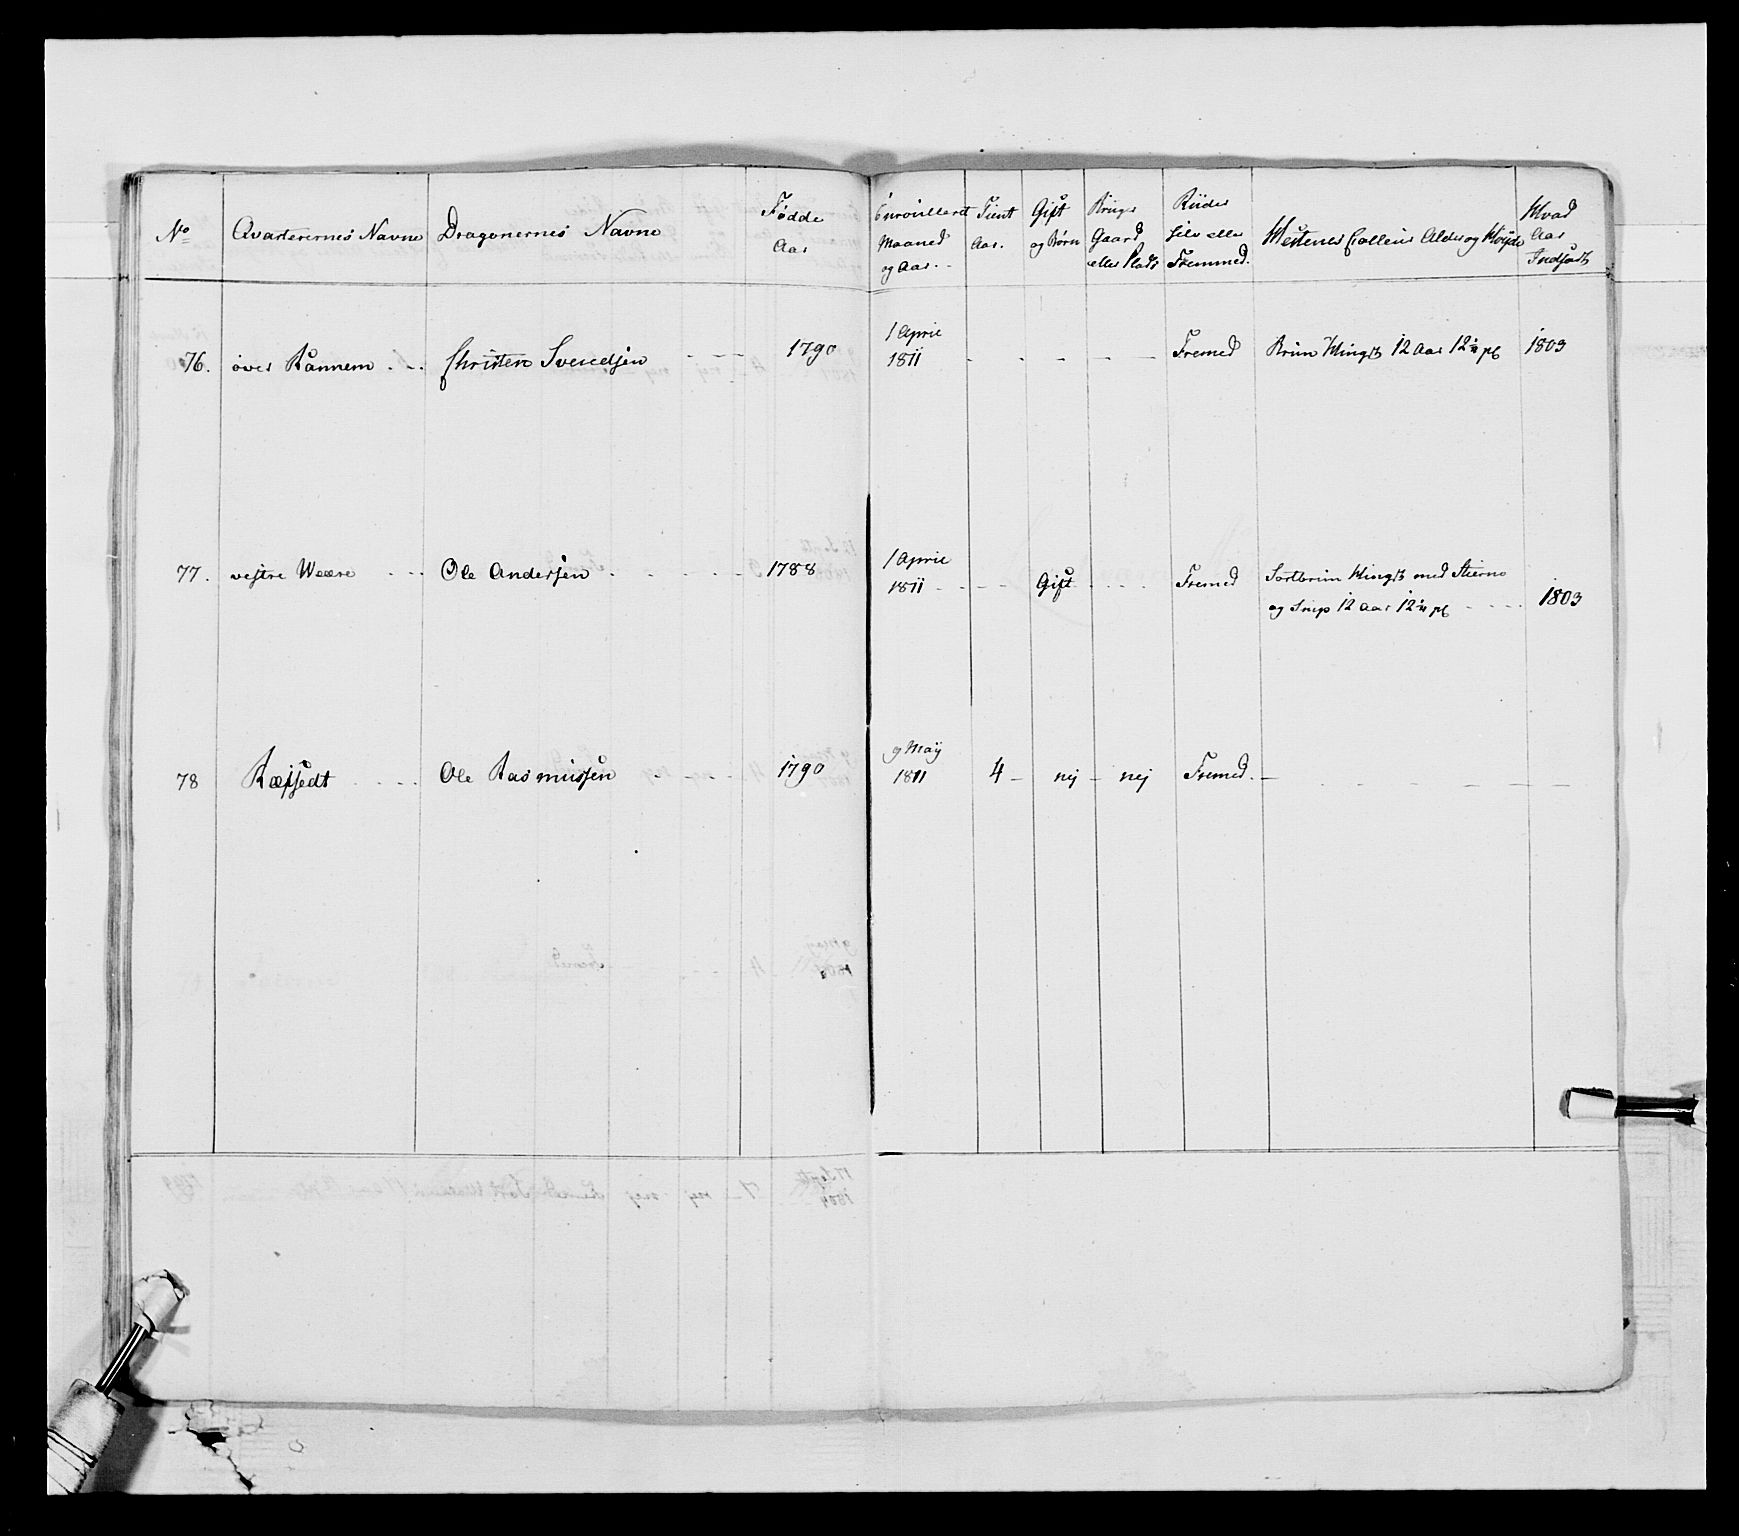 No Qvarterernes Navne Dragonernes Navne Fødde Aar Enroullerd Maaned og Aar. Tient Aar. Gift og Børn Bruger Gaard eller Plads Riider Selv eller Fremmed. Hestenes Couleur Alder og Høyde Hvad Aar Indsadt
76. over Rannem Christen Svendsen 1790 1 April 1811 - - - - Fremed Brun Hingst 12 Aar 12 1803
77. vestre Wære Ole Andersen 1788 1 April 1811 - - Gift - - Fremed Sortbrun Hingst med Stierne
og Snip 12 Aar 12 1803
78 Ræfsedt Ole Rasmussen 1790 9 Maÿ 1811 4 - nej - nej Fremed. -